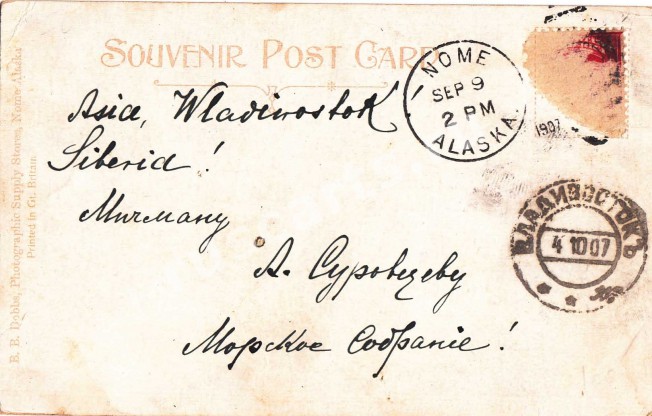 SOUVENIR POST CARD
NOME
SEP 9
2 PM
ALASKA.
1907
Asia, Wladivostok!
Siberia!
Мичману
А. Суровцеву
Морское Собранiе!
ВЛАДИВОСТОКЪ
4 10 07
B. B. Dobbs, Photographic Supply Stores, Nome Alaska
Printed in Gt. Britan.